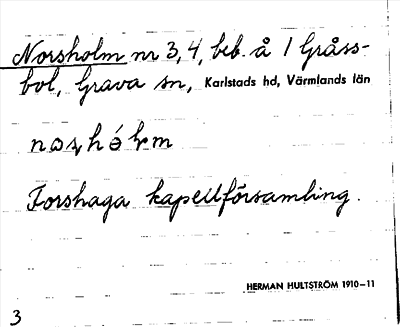 Norsholm nr 3, 4, beb. å 1 Gråss-
bol, Grava sn, Karlstads hd, Värmlands län
Forshaga kapellförsamling.
HERMAN HULTSTRÖM 1910-11
3